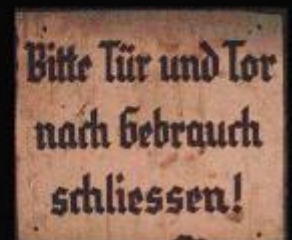 Bitte Tür und Tor
nach Gebrauch
schliessen!